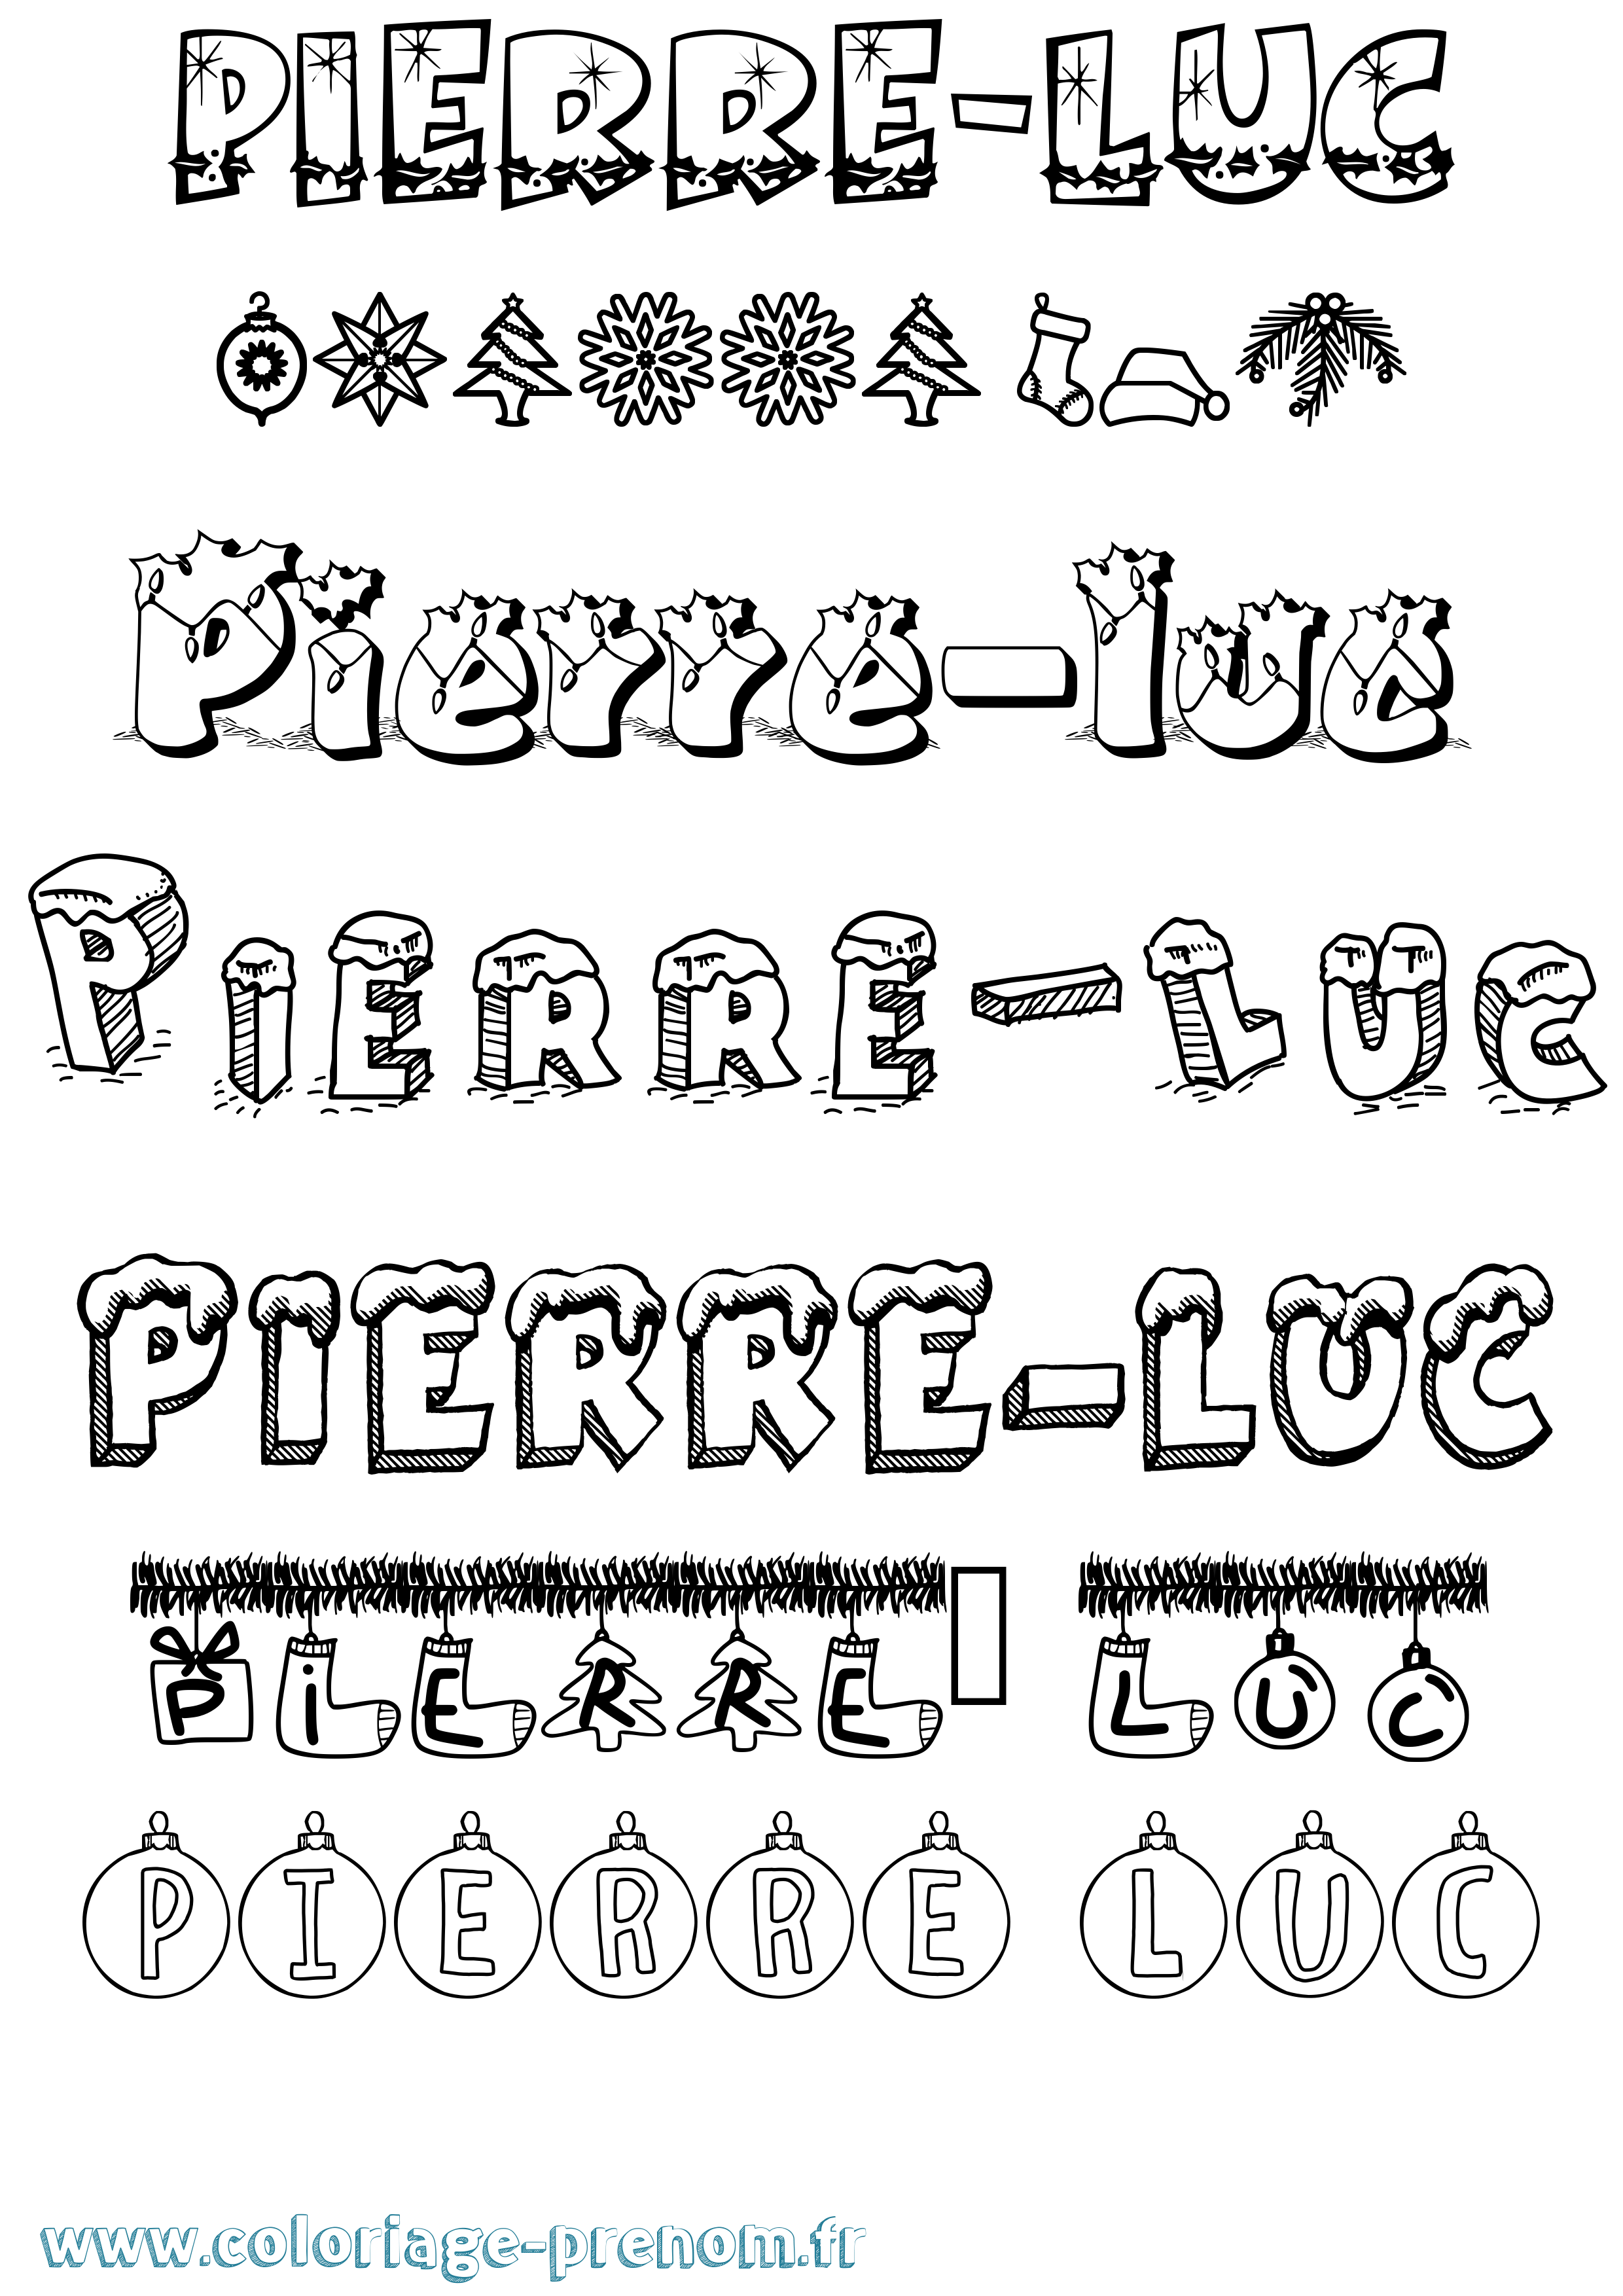 PIERRE-LUC
Pierre-luc
PIERRE-LUC
PIERRE-LUC
PiERRE LUC
PIERRE LUC
www.coloriage-prenom.fr